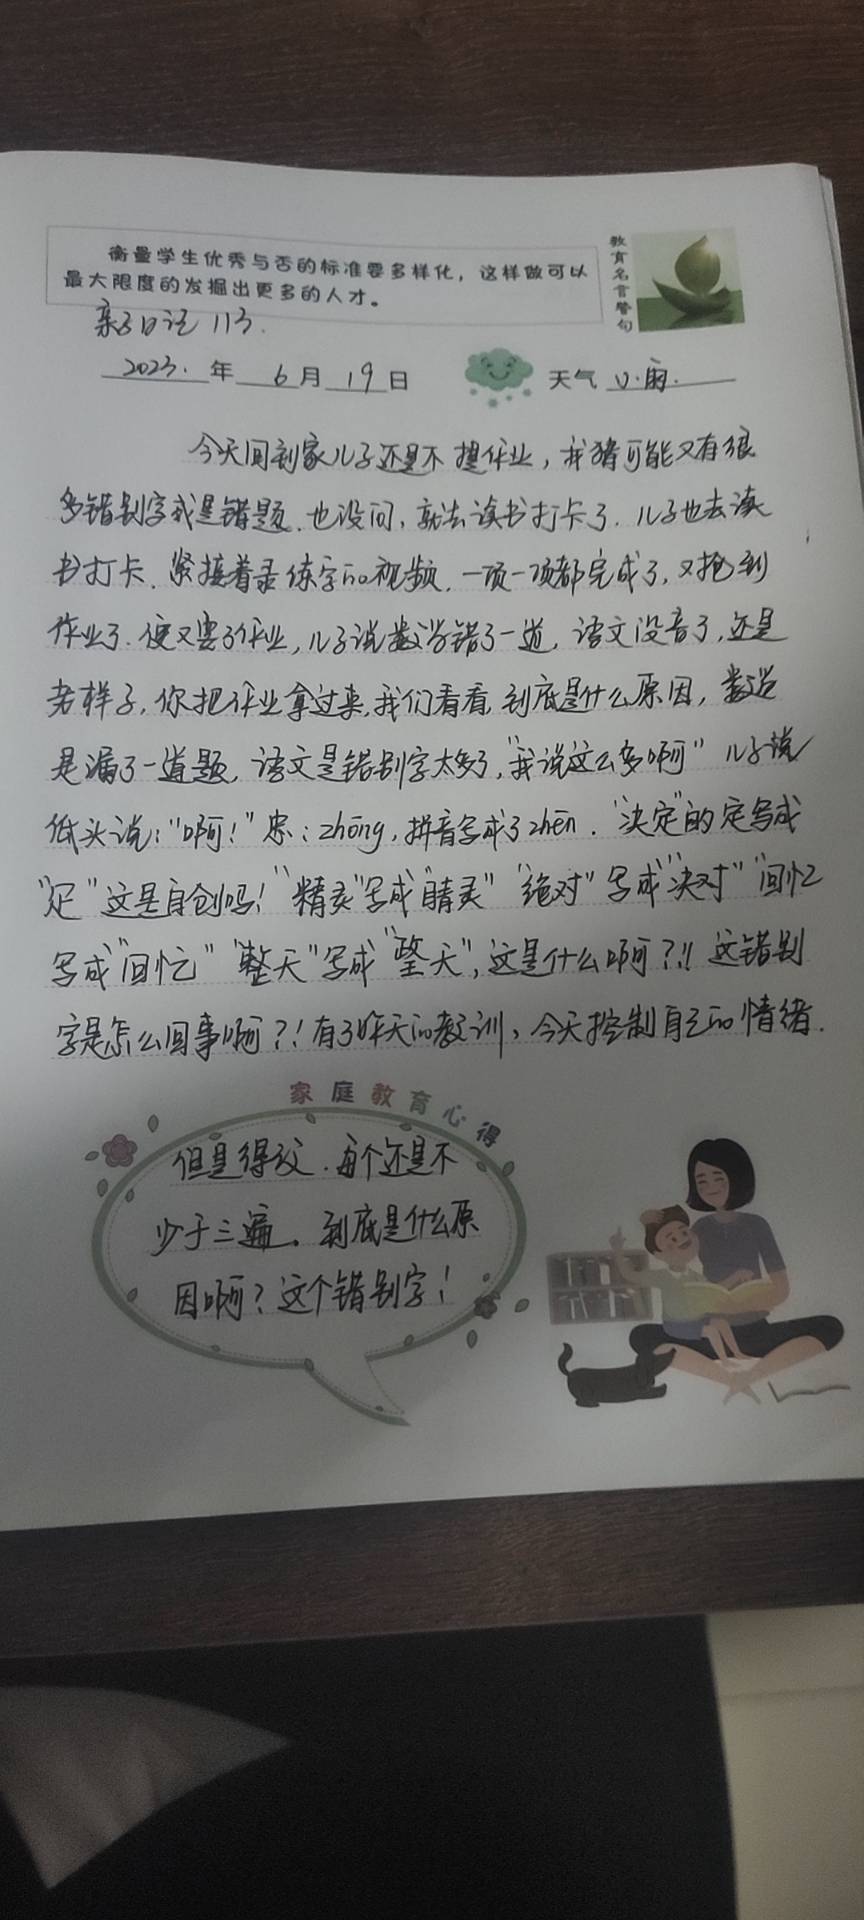 衡量学生优秀与否的标准要多样化，这样做可以
最大限度的发掘出更多的人才。
教育名言警句
亲子日记 113.
2023. 年 6 月 19 日 天气 小雨.
今天回到家儿子还是不提作业，我猜可能又有很
多错别字或是错题.也没问，就去读书打卡了.儿子也去读
书打卡、紧接着录练字的视频.一项一项都完成了，又抢到
作业了.便又要了作业，儿子说数学错了一道，语文没音了，还是
老样子，你把作业拿过来，我们看看，到底是什么原因，数学
是漏了一道题，语文是错别字太多了，“我说这么多啊”儿子说
低头说：“啊！”忠：zhōng，拼音写成了zhēn.“决定”的定写成
“ ”这是自创吗！“精灵”写成“睛灵”“绝对”写成“决对”“回忆
写成“回忆”“整天”写成“ 天”，这是什么啊？！！这错别
字是怎么回事啊？！有了昨天的教训，今天控制自己的情绪.
家庭教育心得
但是得改.每个还是不
少于三遍。到底是什么原
因啊？这个错别字！